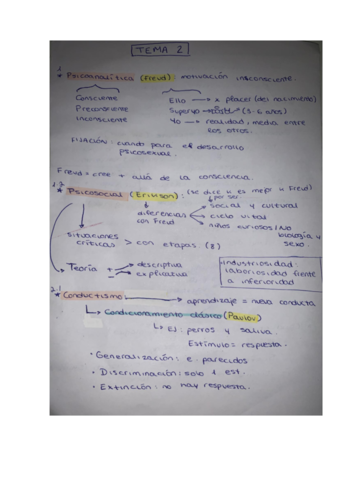 TEMA 2
1. * Psicoanalítica (Freud): motivación inconsciente.
Consciente
Preconsciente
Inconsciente
Ello → x placer (des nacimiento)
Superyo → (3-6 años)
Yo → realidad, media entre
los otros.
FIJACIÓN: cuando para el desarrollo
psicosexual.
Freud = cree + allá de la consciencia.
* Psicosocial (Erikson): (se dice q es mejor q Freud)
por ser:
diferencias
con Freud
social y cultural
ciclo vital
niños curiosos/No
biología y
sexo.
situaciones
críticas > con etapas (8)
Teoría + descriptiva
- explicativa
industriosidad:
laboriosidad frente
a inferioridad
2.1 * Conductismo → aprendizaje = nueva conducta
Condicionamiento clásico (Paulov)
EJ: perros y saliva.
Estímulo = respuesta.
• Generalización: e. parecidos
• Discriminación: solo 1 est.
• Extinción: no hay respuesta.